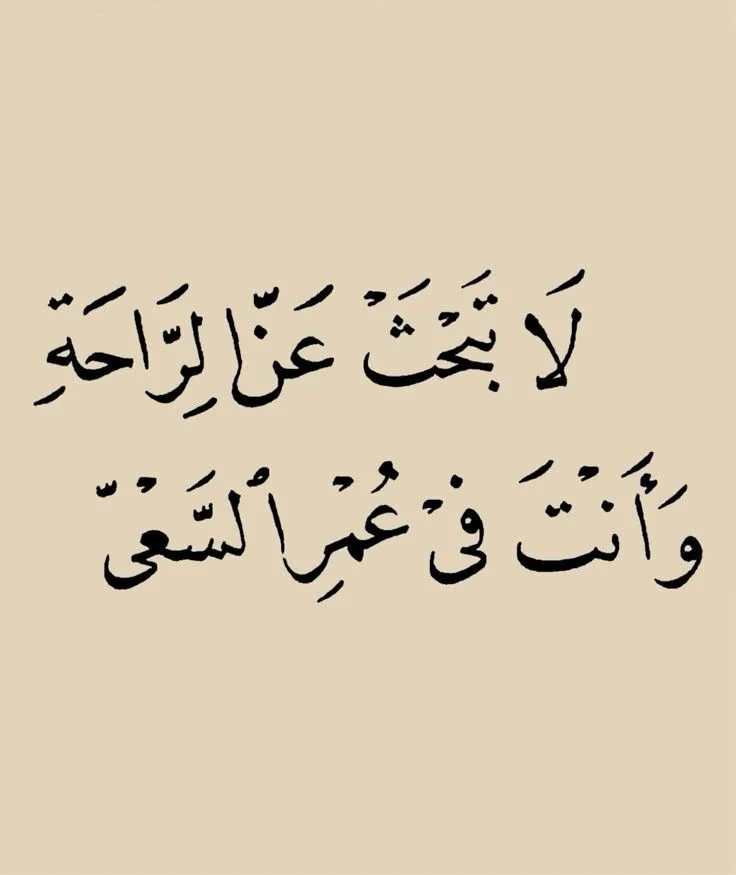 لَا تَبْحَثْ عَنّ الِرَّاحَةِ
وَأَنْتَ فِيْ عُمْرِ السَّعْيّ